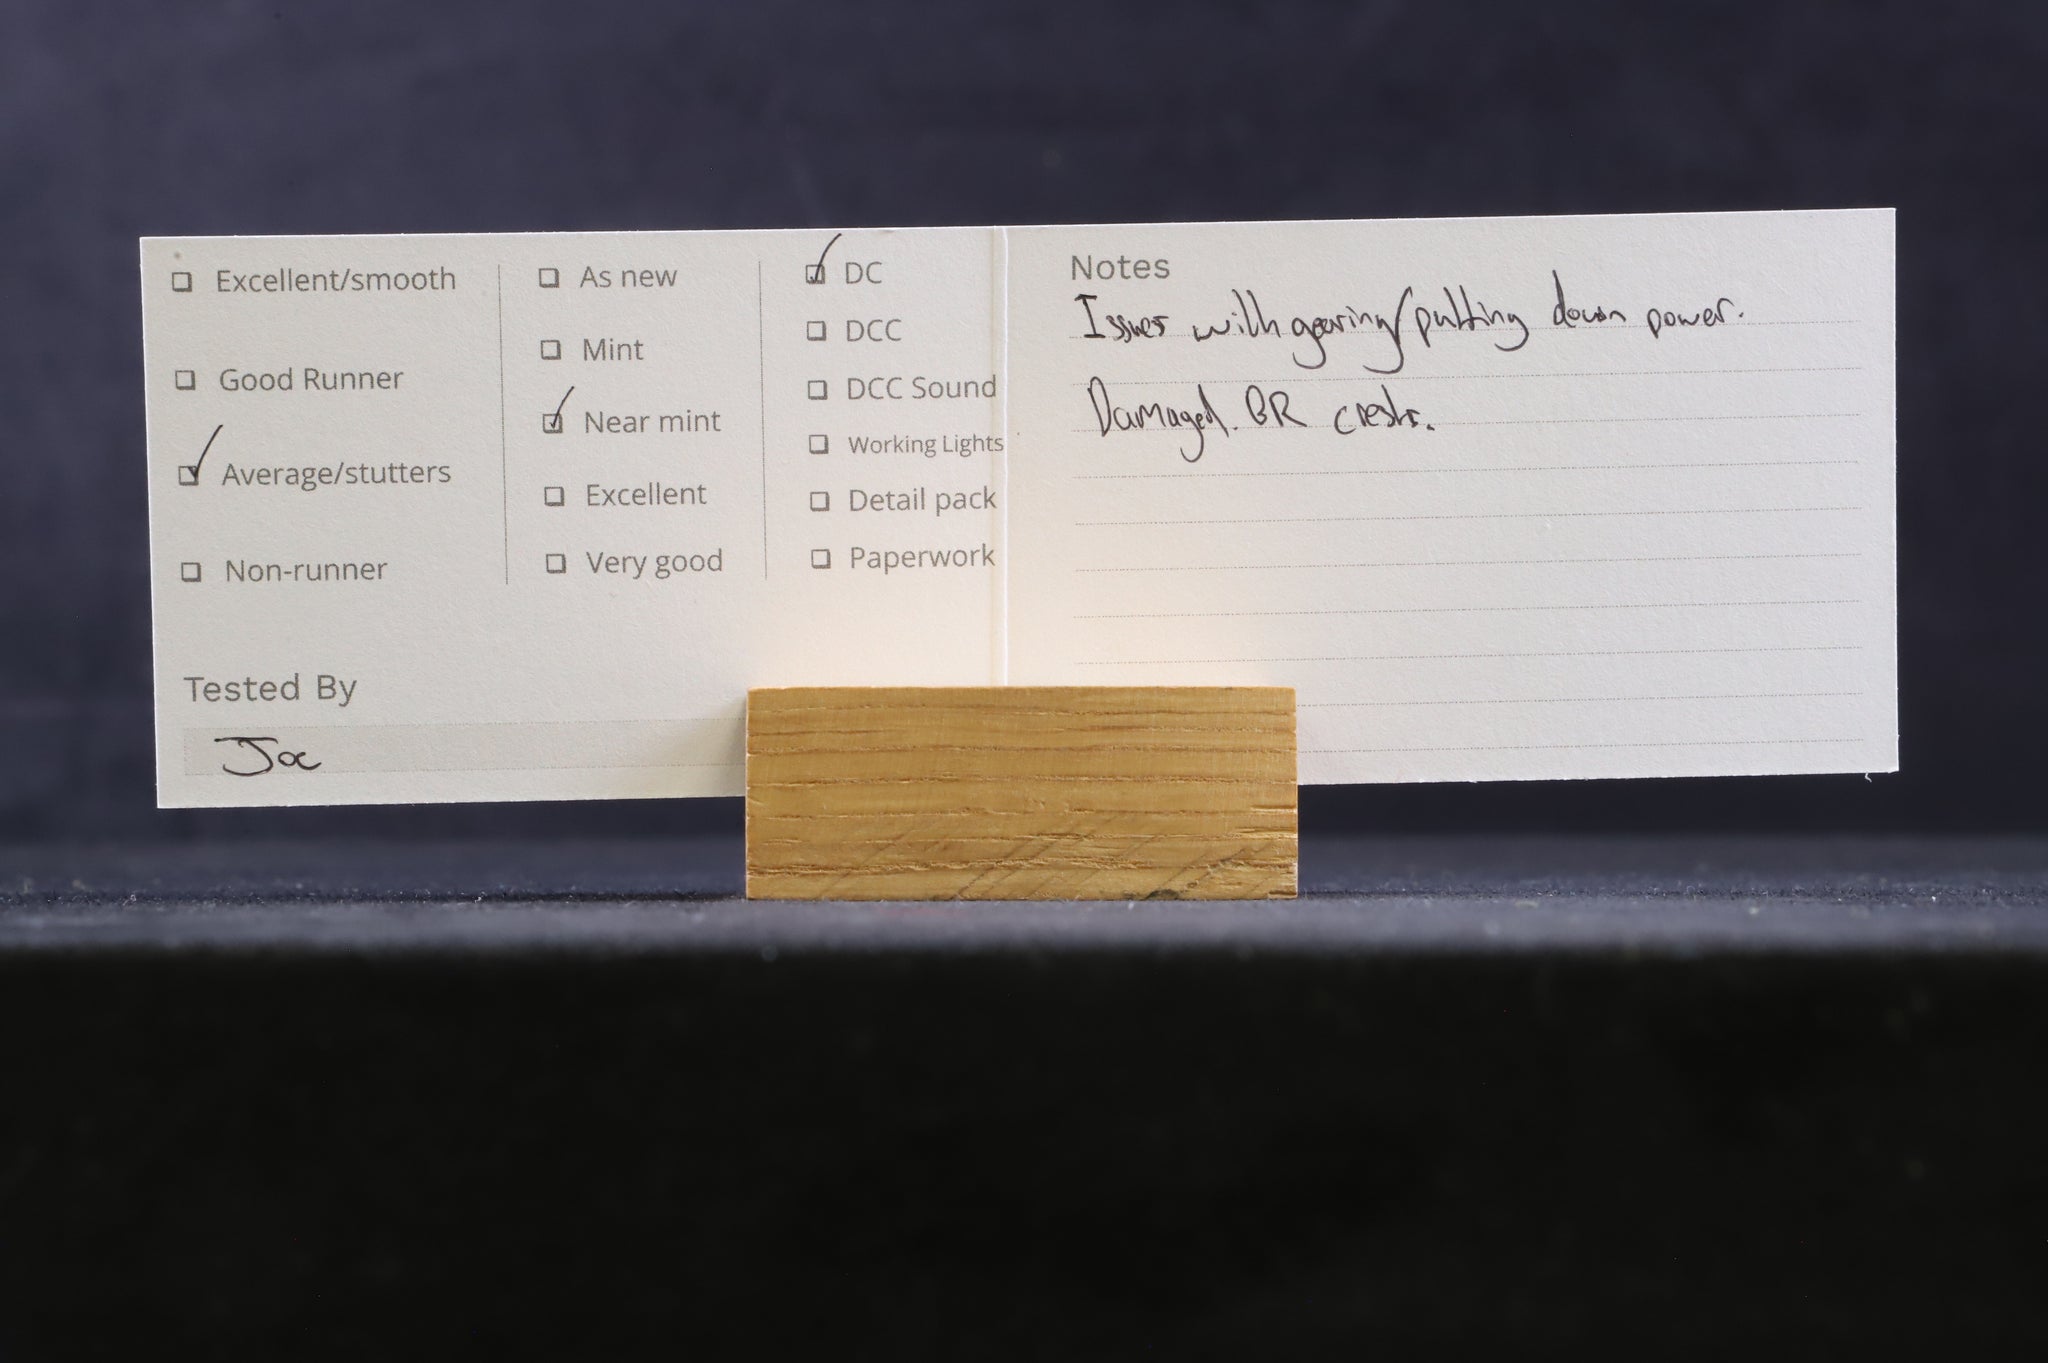 Excellent/smooth
Good Runner
Average/stutters
Non-runner
As new
Mint
Near mint
Excellent
Very good
DC
DCC
DCC Sound
Working Lights
Detail pack
Paperwork
Tested By
Joe
Notes
Issues with gearing/putting down power.
Damaged. BR crests.